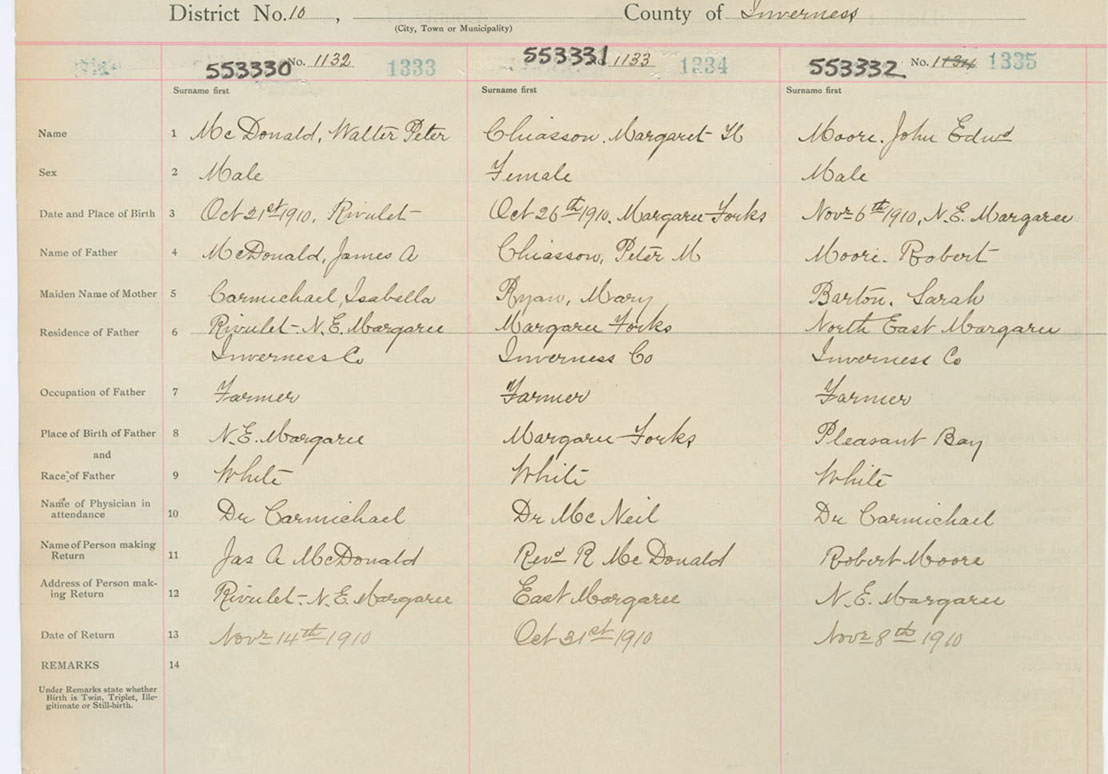 District No. 10, County of Inverness
(City, Town or Municipality)
553330 No. 1132 1333 553331 No. 1133 1334 553332 No. 1134 1335
Surname first Surname first Surname first
Name 1 McDonald, Walter Peter Chiasson, Margaret H Moore. John Edwd
Sex 2 Male Female Male
Date and Place of Birth 3 Oct 21st 1910, Rivulet Oct 26th 1910, Margaree Forks Novr 6th 1910, N.E. Margaree
Name of Father 4 McDonald, James A Chiasson, Peter M Moore. Robert
Maiden Name of Mother 5 Carmichael, Isabella Ryan, Mary Barton, Sarah
Residence of Father 6 Rivulet- N.E. Margaree Margaree Forks North East Margaree
Inverness Co Inverness Co Inverness Co
Occupation of Father 7 Farmer Farmer Farmer
Place of Birth of Father 8 N.E. Margaree Margaree Forks Pleasant Bay
and
Race of Father 9 White White White
Name of Physician in
attendance 10 Dr Carmichael Dr McNeil Dr Carmichael
Name of Person making
Return 11 Jas A McDonald Revd R McDonald Robert Moore
Address of Person mak-
ing Return 12 Rivulet- N.E. Margaree East Margaree N.E. Margaree
Date of Return 13 Novr 14th 1910 Oct 31st 1910 Novr 8th 1910
REMARKS 14
Under Remarks state whether
Birth is Twin, Triplet, Ille-
gitimate or Still-birth.